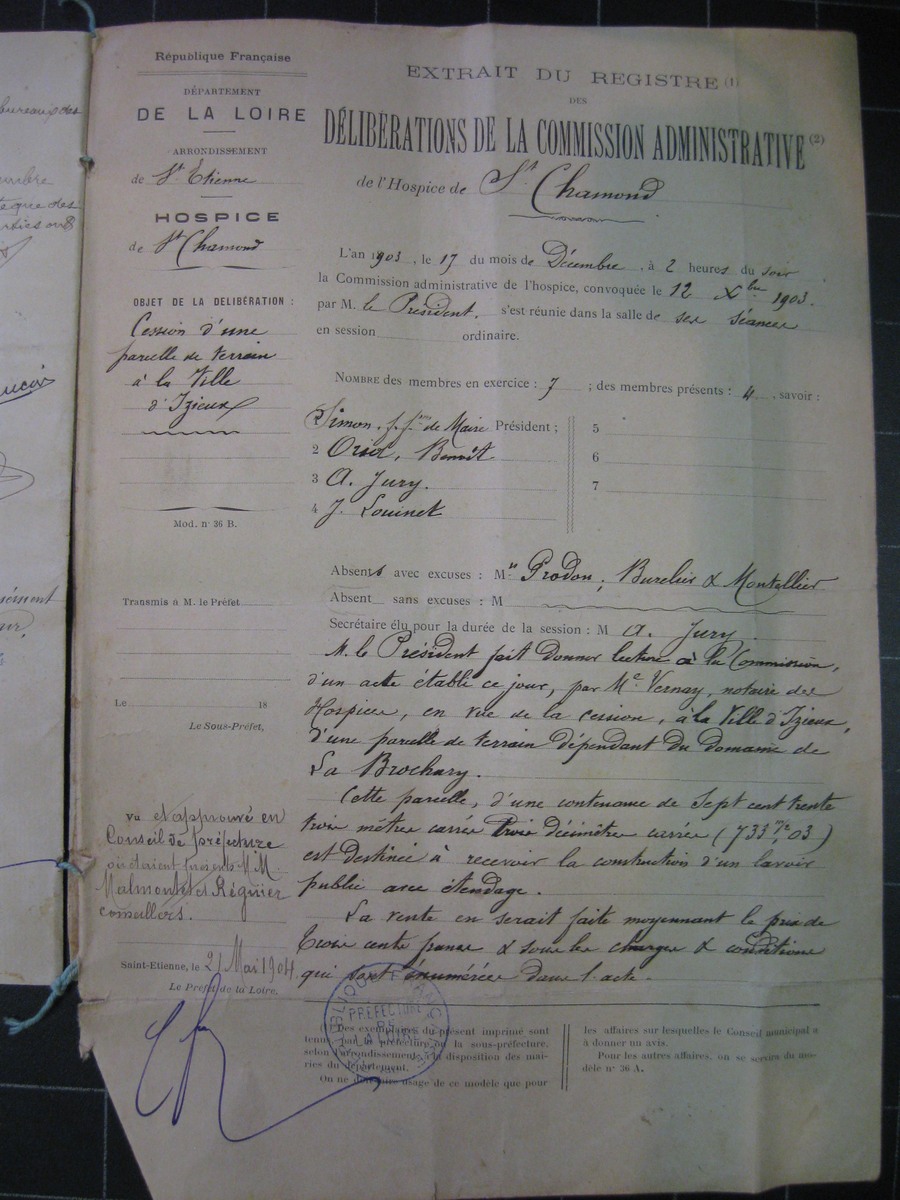 bureaux des
République Française
DÉPARTEMENT
DE LA LOIRE
ARRONDISSEMENT
de St Etienne
HOSPICE
de St Chamond
OBJET DE LA DÉLIBÉRATION :
Cession d'une
parcelle de terrain
à la Ville
d'Izieux
Mod. n° 36 B.
Transmis à M. le Préfet
Le 18
Le Sous-Préfet,
Vu et approuvé en
Conseil de préfecture
où étaient présents M.M
Malmontet et Régnier
conseillers.
Saint-Etienne, le 21 Mai 1904
Le Préfet de la Loire.
EXTRAIT DU REGISTRE (1)
DES
DÉLIBÉRATIONS DE LA COMMISSION ADMINISTRATIVE (2)
de l'Hospice de St Chamond
L'an 1903, le 17 du mois de Décembre, à 2 heures du soir
la Commission administrative de l'hospice, convoquée le 12 Xbre 1903.
par M. le Président, s'est réunie dans la salle de ses séances
en session ordinaire.
NOMBRE des membres en exercice : 7 ; des membres présents : 4, savoir :
Simon, f.f.ons de Maire Président ;
2 Oriol, Benoît
3 A. Jury.
4 J. Louinet
5
6
7
Absents avec excuses : Mrs Prodon, Burelier & Montellier
Absent sans excuses : M
Secrétaire élu pour la durée de la session : M A. Jury.
M. le Président fait donner lecture à la Commission,
d'un acte établi ce jour, par Me Vernay, notaire des
Hospices, en vue de la cession, à la Ville d'Izieux,
d'une parcelle de terrain dépendant du domaine de
La Brochary.
Cette parcelle, d'une contenance de Sept cent trente
trois mètres carrés trois décimètres carrés (733mc,03)
est destinée à recevoir la construction d'un lavoir
public avec étendage.
La vente en serait faite moyennant le prix de
Trois cents francs & sous les charges & conditions
qui sont énumérées dans l'acte.
(1) Des exemplaires du présent imprimé sont
tenus par la préfecture ou la sous-préfecture,
selon l'arrondissement, à la disposition des mai-
ries du département.
On ne doit usage de ce modèle que pour
les affaires sur lesquelles le Conseil municipal a
à donner un avis.
Pour les autres affaires, on se servira du mo-
dèle n° 36 A.
PRÉFECTURE
DE
LA LOIRE